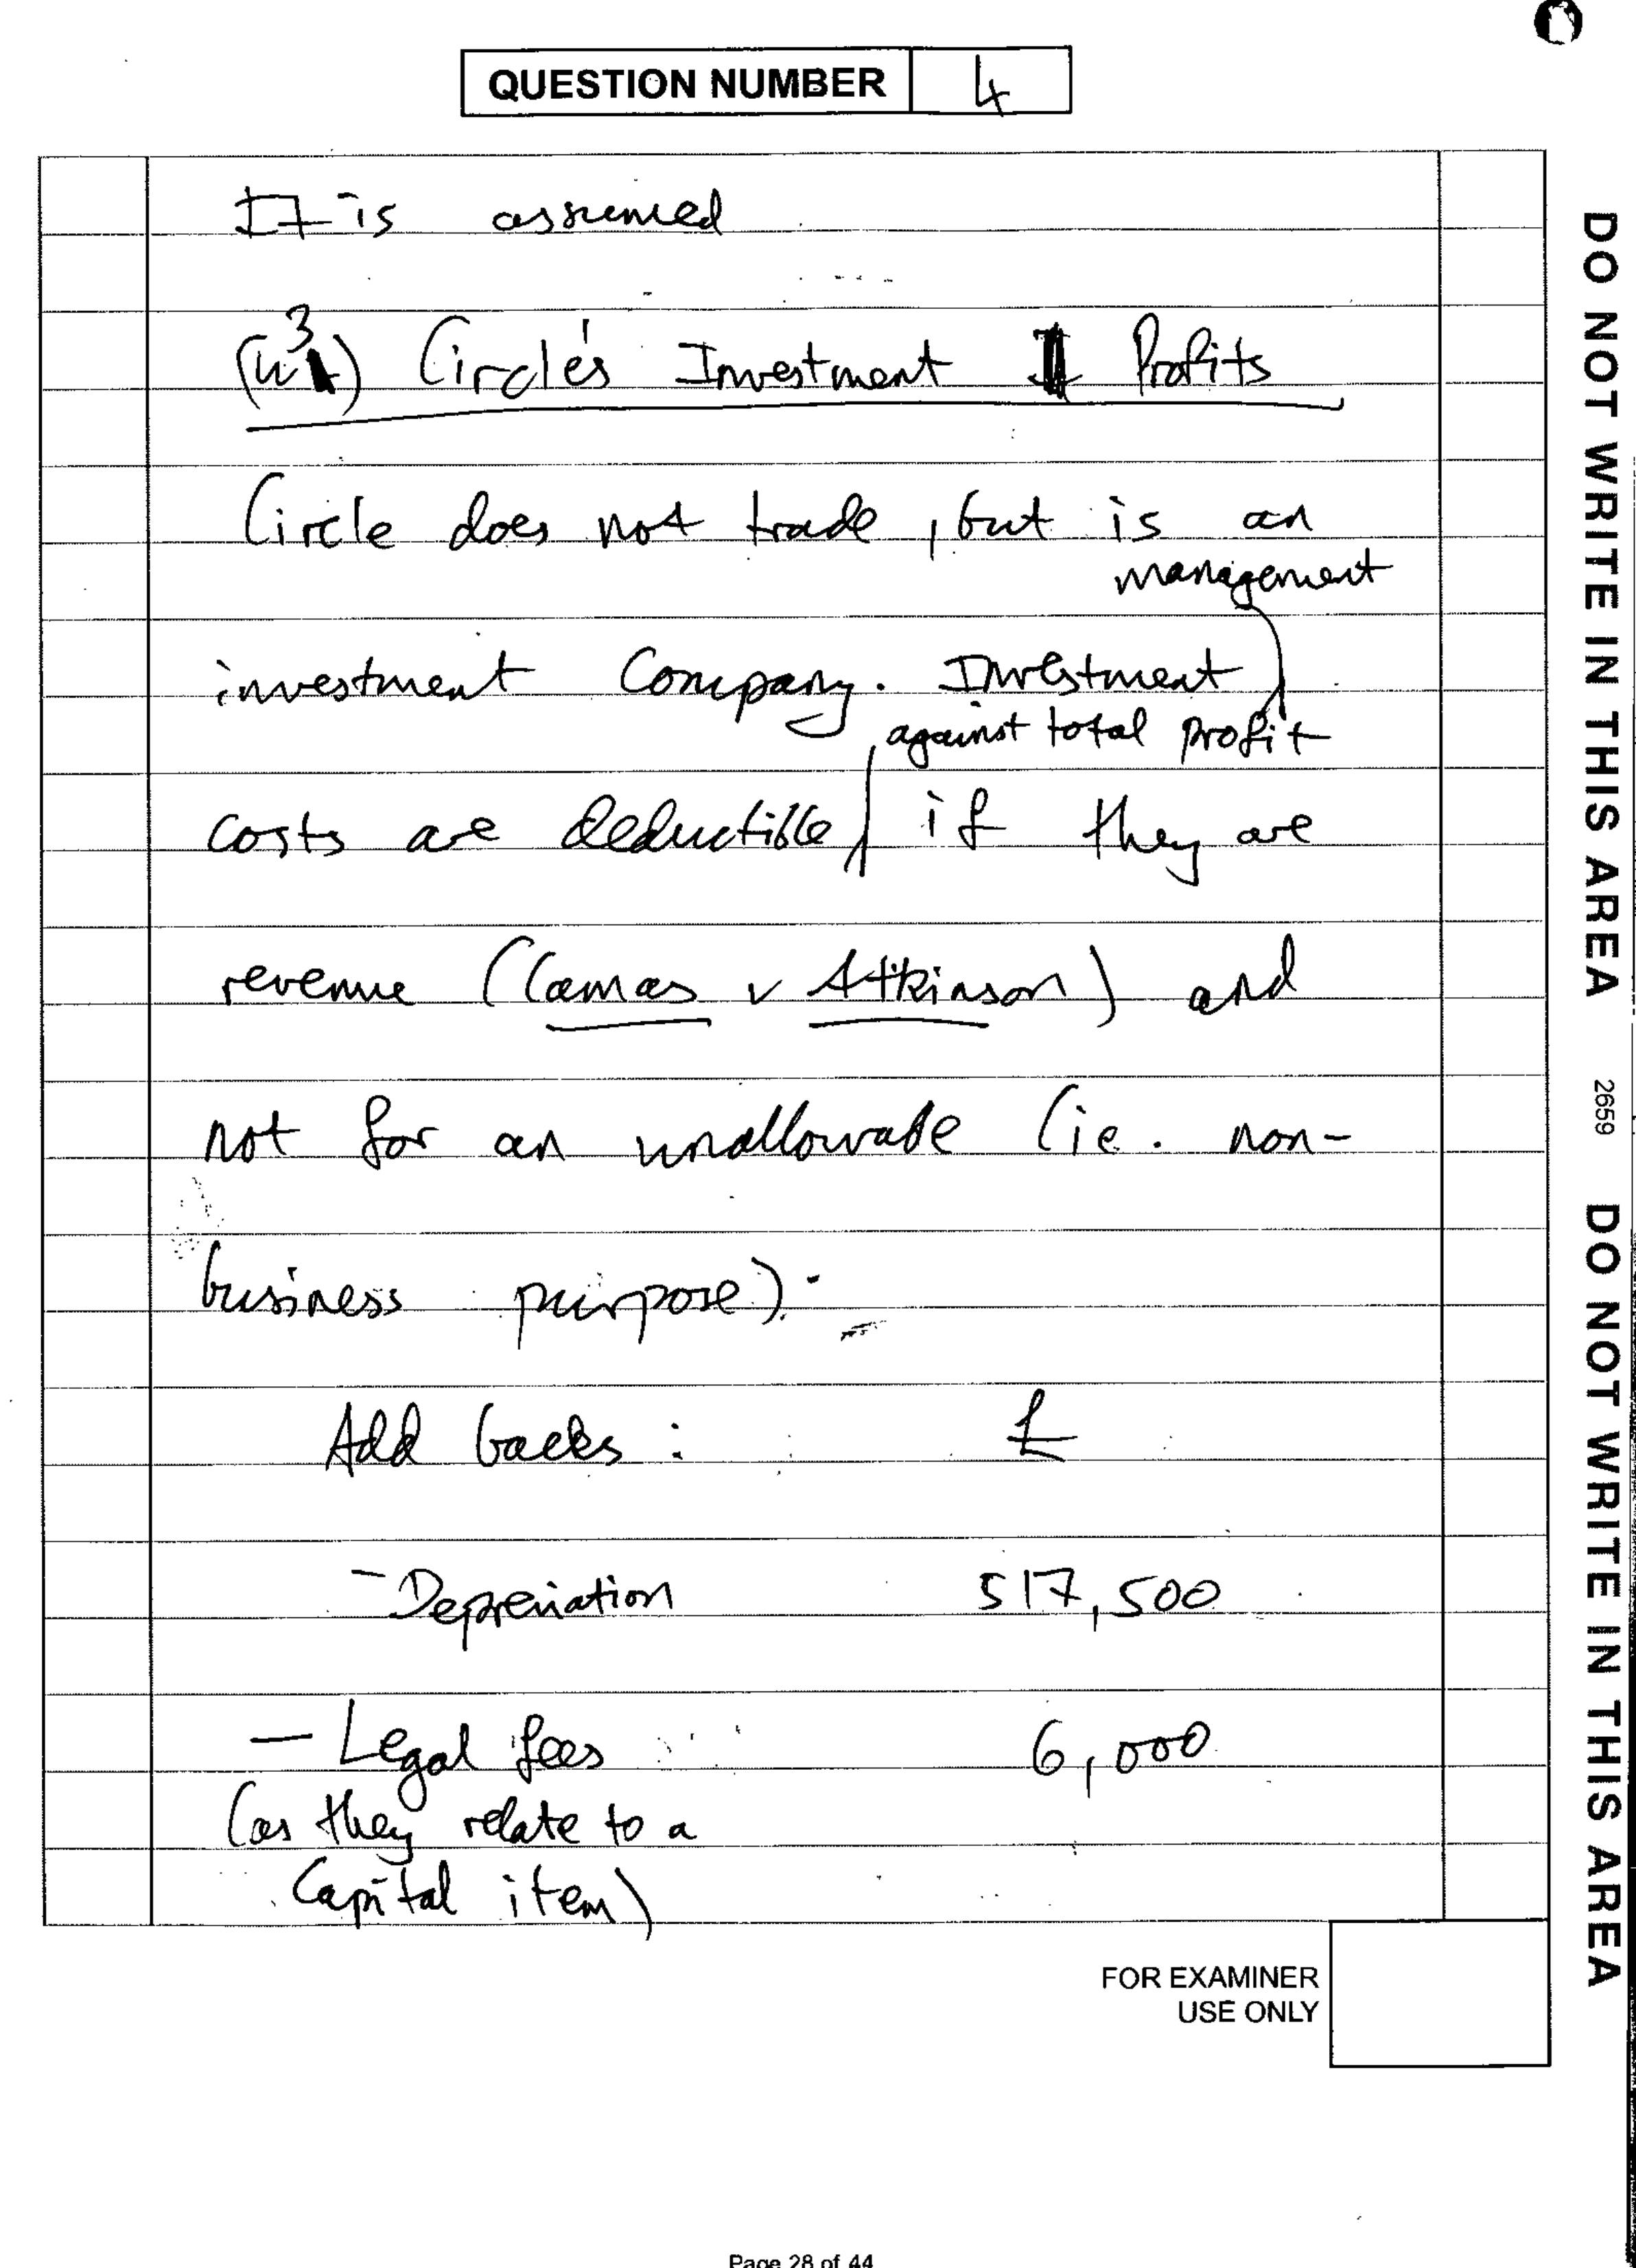 QUESTION NUMBER 4
It is assumed
(W3) Circle's Investment Profits
Circle does not trade, but is an
management
investment Company. Investment
against total profit
costs are deductible if they are
revenue (Camas v Atkinson) and
not for an unallowable (ie. non-
business purpose).
Add backs: £
- Depreciation 517,500
- Legal fees 6,000
(as they relate to a
Capital item)
FOR EXAMINER
USE ONLY
Page 28 of 44
DO NOT WRITE IN THIS AREA 2659 DO NOT WRITE IN THIS AREA